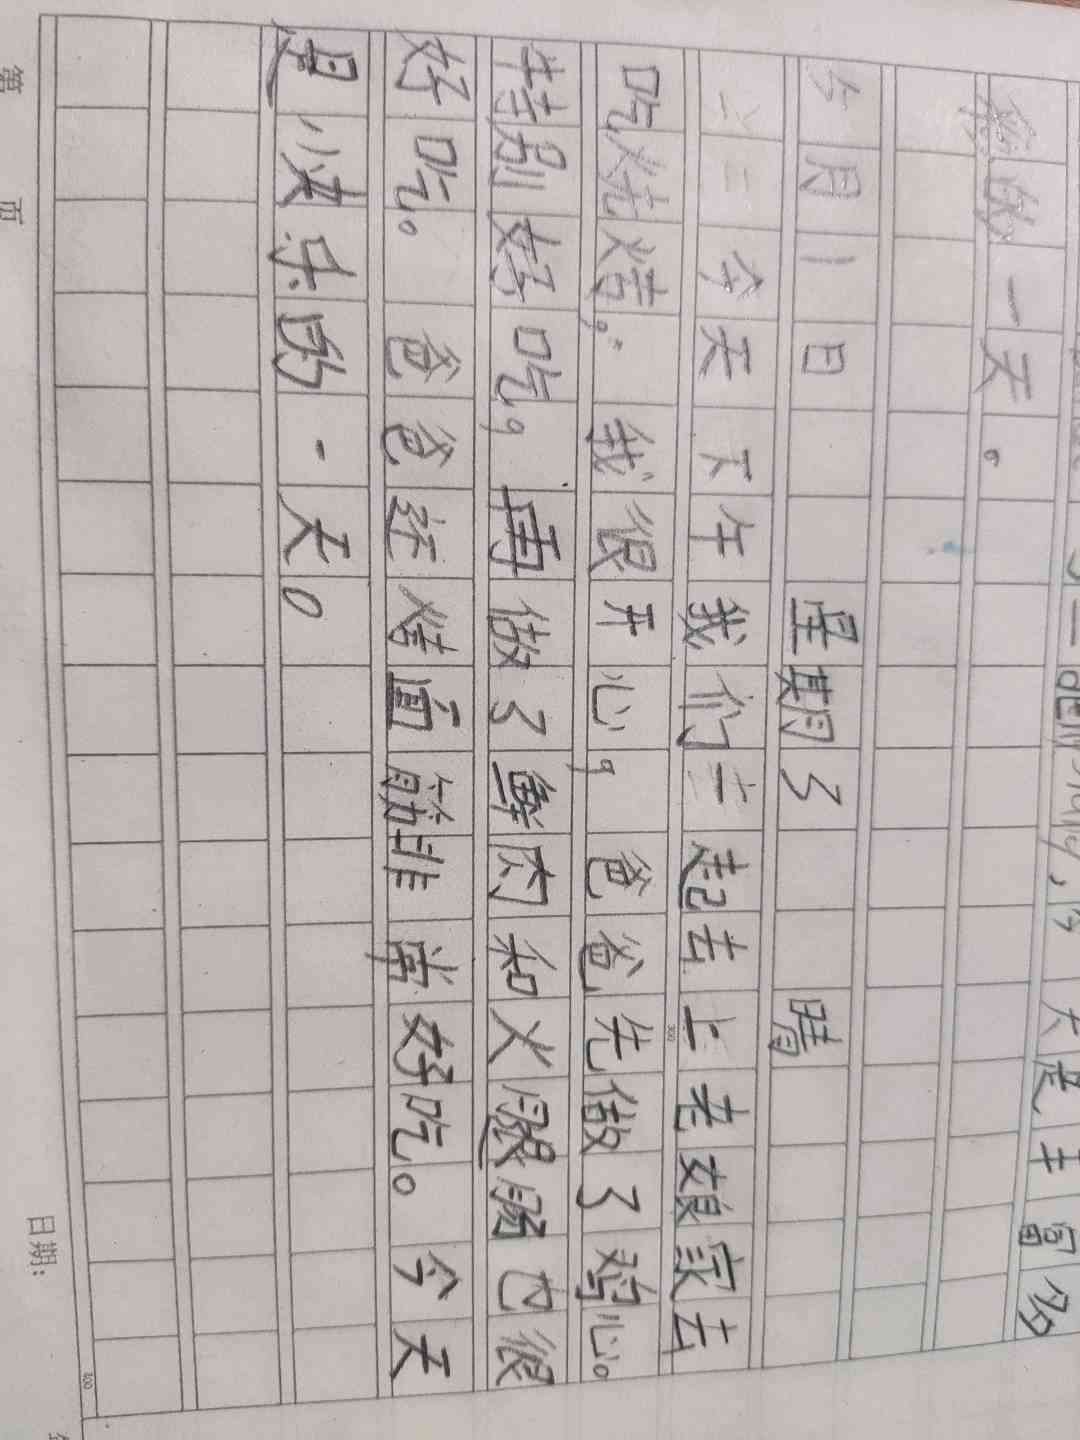 大是丰富多
彩的一天。
今月11日 星期3 晴
今天下午我们一起去上老娘家去
吃烧烤。我很开心，爸爸先做了鸡心。
特别好吃，再做了鲜肉和火腿肠也很
好吃。爸爸还烤面筋非常好吃。今天
是快乐的一天。
第 页
日期：